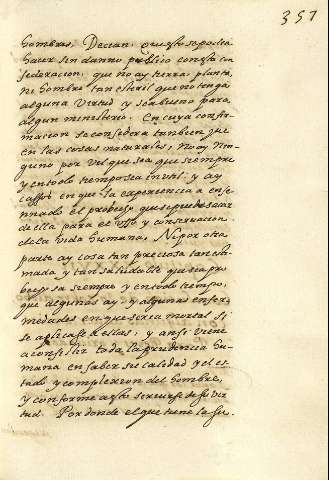 357
hombres. Decian, que esto se podia
hacer sin danno publico con esta con
sederacion, que no ay tierra, planta,
ni hombre tan esteril que no tenga
alguna virtud y sea bueno para
algun ministerio. En cuya confir
macion se consedera tanbien que
en las cosas naturales, no ay nin
guno por vil que sea que siempre
y en todo tiempo sea inutil. y ay
cassos en que la experiencia a ense
nnado el probecho que se puede sacar
de ella para el uso y conseruacion
de la vida humana. Ni por otra
parte ay cosa tan preciosa tan esti
mada, y tan saludable que sea pro
buechosa siempre y en todo tiempo,
que algunos ay. y algunas enfer
medades en que seria mortal si
se aplicase a ellas, y ansi viene
a consistir toda la prudencia hu
mana en saber su calidad y el es
tado y complexion del hombre,
y conforme a esto seruirse de su vir
tud. Por donde el que tiene la su.